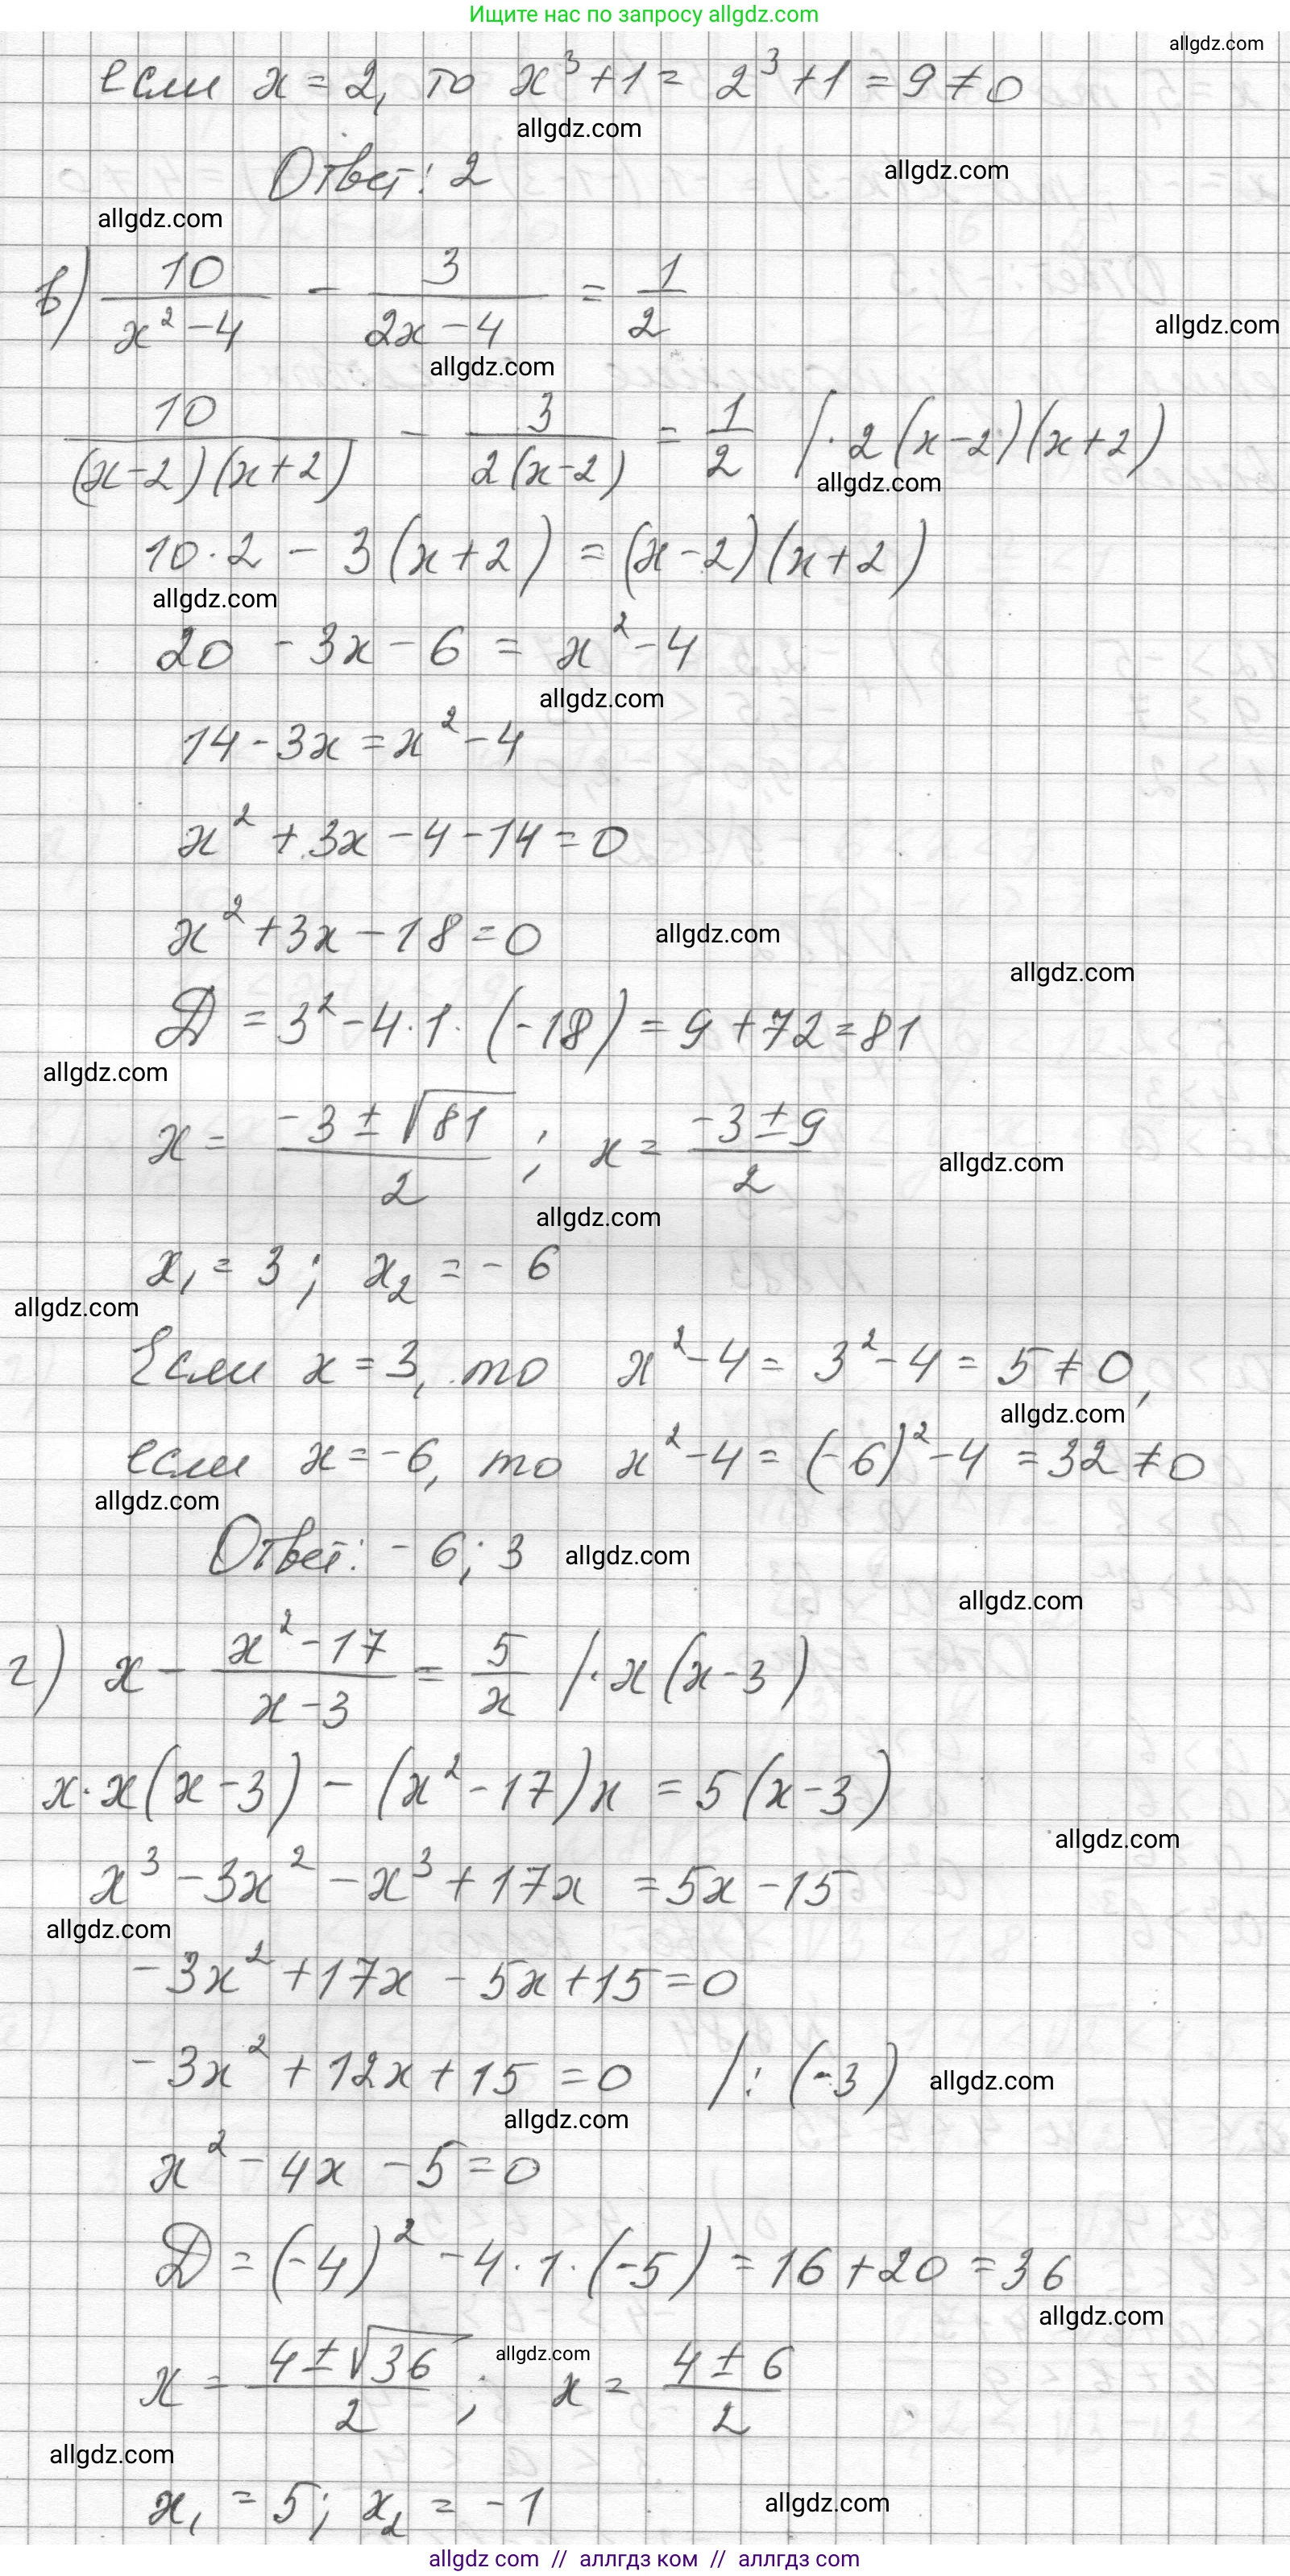 Ищите нас по запросу allgdz.com
allgdz.com
если x = 2, то x³ + 1 = 2³ + 1 = 9 ≠ 0
allgdz.com
Ответ: 2
allgdz.com
allgdz.com
в) 10/(x² - 4) - 3/(2x - 4) = 1/2
allgdz.com
allgdz.com
10/((x-2)(x+2)) - 3/(2(x-2)) = 1/2 /· 2(x-2)(x+2)
allgdz.com
10·2 - 3(x+2) = (x-2)(x+2)
allgdz.com
20 - 3x - 6 = x² - 4
allgdz.com
14 - 3x = x² - 4
x² + 3x - 4 - 14 = 0
x² + 3x - 18 = 0
allgdz.com
allgdz.com
D = 3² - 4·1·(-18) = 9 + 72 = 81
allgdz.com
x = (-3 ± √81)/2 ; x = (-3 ± 9)/2
allgdz.com
allgdz.com
x₁ = 3; x₂ = -6
allgdz.com
Если x = 3, то x² - 4 = 3² - 4 = 5 ≠ 0,
allgdz.com
если x = -6, то x² - 4 = (-6)² - 4 = 32 ≠ 0
allgdz.com
Ответ: -6; 3
allgdz.com
allgdz.com
г) x - (x² - 17)/(x - 3) = 5/x /· x(x-3)
x·x(x-3) - (x² - 17)x = 5(x-3)
allgdz.com
x³ - 3x² - x³ + 17x = 5x - 15
allgdz.com
-3x² + 17x - 5x + 15 = 0
-3x² + 12x + 15 = 0 /: (-3)
allgdz.com
allgdz.com
x² - 4x - 5 = 0
D = (-4)² - 4·1·(-5) = 16 + 20 = 36
allgdz.com
x = (4 ± √36)/2 ; x = (4 ± 6)/2
allgdz.com
allgdz.com
x₁ = 5; x₂ = -1
allgdz.com
allgdz com // аллгдз ком // аллгдз com